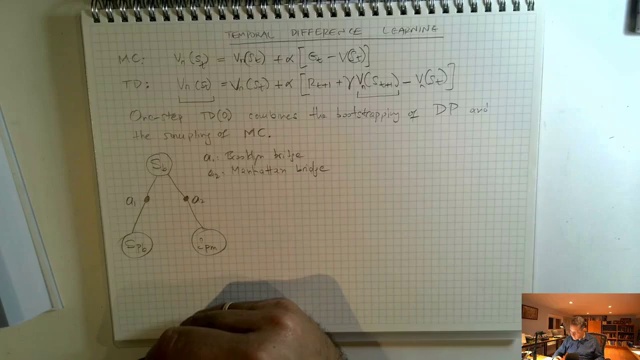 TEMPORAL DIFFERENCE LEARNING
MC: Vπ(St) = Vπ(St) + α [Gt - V(St)]
TD: Vπ(St) = Vπ(St) + α [Rt+1 + γ Vπ(St+1) - Vπ(St)]
One-step TD(0) combines the bootstrapping of DP and
the sampling of MC.
a1: Brooklyn bridge
a2: Manhattan bridge
Sb
a1 a2
Spb Spm